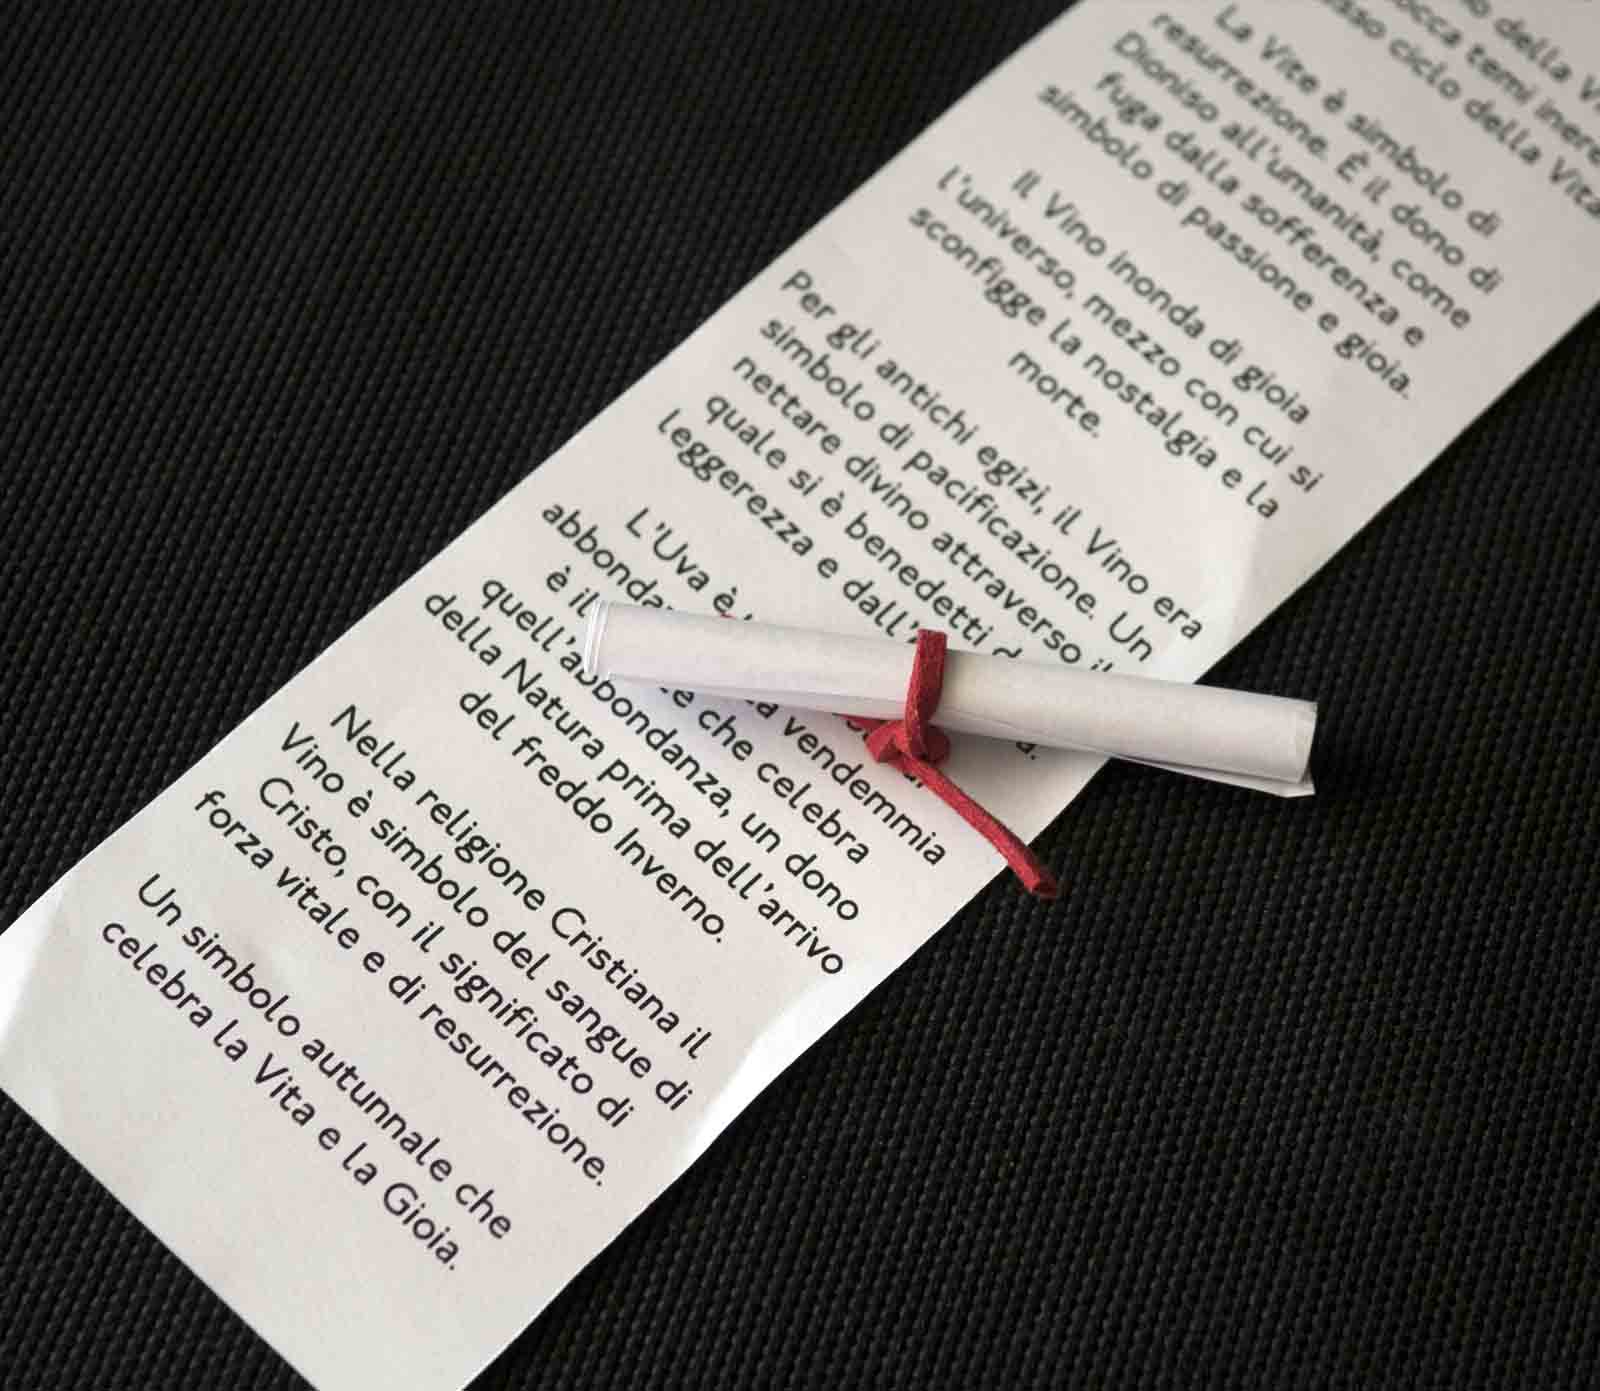 della
occa temi
sso ciclo della Vita
La Vite è simbolo di
resurrezione. É il dono di
Dioniso all'umanità, come
fuga dalla sofferenza e
simbolo di passione e gioia.
Il Vino inonda di gioia
l'universo, mezzo con cui si
sconfigge la nostalgia e la
morte.
Per gli antichi egizi, il Vino era
simbolo di pacificazione. Un
nettare divino attraverso il
quale si è benedetti
leggerezza e dall'
L'Uva è
è il
vendemmia
che celebra
quell'abbondanza, un dono
della Natura prima dell'arrivo
del freddo Inverno.
Nella religione Cristiana il
Vino è simbolo del sangue di
Cristo, con il significato di
forza vitale e di resurrezione.
Un simbolo autunnale che
celebra la Vita e la Gioia.